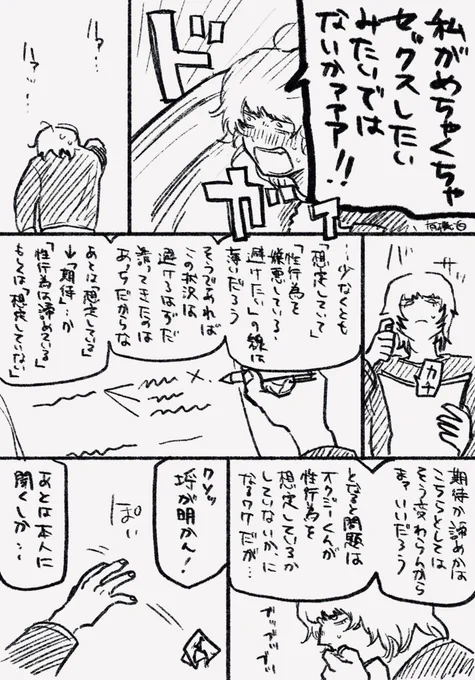 私がめちゃくちゃ
セックスしたい
みたいでは
ないかァァァ!!
ドド
ガッ
…少なくとも
「想定していて」
「性行為を
嫌悪している・
避けたい」の線は
薄いだろう
そうであれば
この状況は
避けるはずだ
誘ってきたのは
あっちだからな
あとは「想定している」
↓「期待」…か
「性行為は諦めている」
もしくは「想定していない」
カチ
期待か諦めかは
こちらとしては
そう変わらんから
まァいいだろう
となると問題は
オクジーくんが
性行為を
想定しているか
していないか、に
なるワケだが…
ブツブツブツ
クソッ
埒が明かん!
ぽい
あとは本人に
聞くしか…